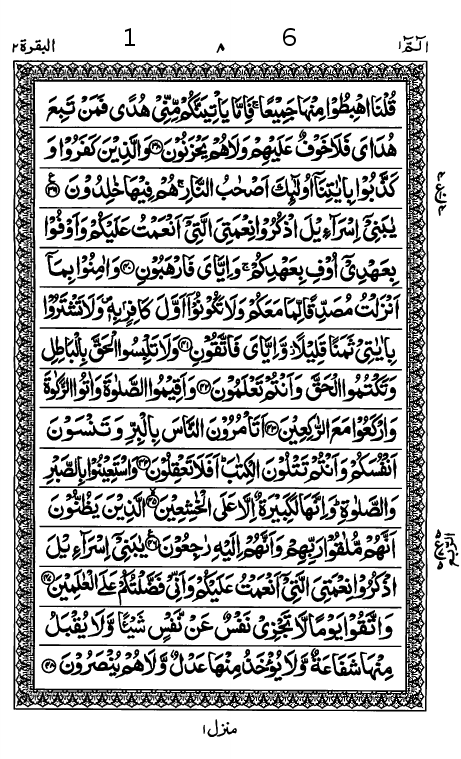 البقرة ٢ 1 ٨ 6 الٓمّٓ ١
قُلۡنَا اهۡبِطُوۡا مِنۡهَا جَمِيۡعًا ۚ فَاِمَّا يَاۡتِيَنَّكُمۡ مِّنِّىۡ هُدًى فَمَنۡ تَبِعَ
هُدَاىَ فَلَا خَوۡفٌ عَلَيۡهِمۡ وَلَا هُمۡ يَحۡزَنُوۡنَ ﴿٣٨﴾ وَالَّذِيۡنَ كَفَرُوۡا وَ
كَذَّبُوۡا بِاٰيٰتِنَاۤ اُولٰٓٮِٕكَ اَصۡحٰبُ النَّارِ ۚ هُمۡ فِيۡهَا خٰلِدُوۡنَ ﴿٣٩﴾ ع
يٰبَنِىۡٓ اِسۡرَآءِيۡلَ اذۡكُرُوۡا نِعۡمَتِىَ الَّتِىۡٓ اَنۡعَمۡتُ عَلَيۡكُمۡ وَاَوۡفُوۡا
بِعَهۡدِىۡٓ اُوۡفِ بِعَهۡدِكُمۡ ۚ وَاِيَّاىَ فَارۡهَبُوۡنِ ﴿٤٠﴾ وَاٰمِنُوۡا بِمَآ
اَنۡزَلۡتُ مُصَدِّقًا لِّمَا مَعَكُمۡ وَلَا تَكُوۡنُوۡٓا اَوَّلَ كَافِرٍۢ بِهٖ ۖ وَلَا تَشۡتَرُوۡا
بِاٰيٰتِىۡ ثَمَنًا قَلِيۡلًا ۫ وَّاِيَّاىَ فَاتَّقُوۡنِ ﴿٤١﴾ وَلَا تَلۡبِسُوا الۡحَقَّ بِالۡبَاطِلِ
وَتَكۡتُمُوا الۡحَقَّ وَاَنۡتُمۡ تَعۡلَمُوۡنَ ﴿٤٢﴾ وَاَقِيۡمُوا الصَّلٰوةَ وَاٰتُوا الزَّكٰوةَ
وَارۡكَعُوۡا مَعَ الرّٰكِعِيۡنَ ﴿٤٣﴾ اَتَاۡمُرُوۡنَ النَّاسَ بِالۡبِرِّ وَتَنۡسَوۡنَ
اَنۡفُسَكُمۡ وَاَنۡتُمۡ تَتۡلُوۡنَ الۡكِتٰبَ ؕ اَفَلَا تَعۡقِلُوۡنَ ﴿٤٤﴾ وَاسۡتَعِيۡنُوۡا بِالصَّبۡرِ
وَالصَّلٰوةِ ؕ وَاِنَّهَا لَكَبِيۡرَةٌ اِلَّا عَلَى الۡخٰشِعِيۡنَ ﴿٤٥﴾ الَّذِيۡنَ يَظُنُّوۡنَ
اَنَّهُمۡ مُّلٰقُوۡا رَبِّهِمۡ وَاَنَّهُمۡ اِلَيۡهِ رٰجِعُوۡنَ ﴿٤٦﴾ ع يٰبَنِىۡٓ اِسۡرَآءِيۡلَ
اذۡكُرُوۡا نِعۡمَتِىَ الَّتِىۡٓ اَنۡعَمۡتُ عَلَيۡكُمۡ وَاَنِّىۡ فَضَّلۡتُكُمۡ عَلَى الۡعٰلَمِيۡنَ ﴿٤٧﴾
وَاتَّقُوۡا يَوۡمًا لَّا تَجۡزِىۡ نَفۡسٌ عَنۡ نَّفۡسٍ شَيۡئًا وَّلَا يُقۡبَلُ
مِنۡهَا شَفَاعَةٌ وَّلَا يُؤۡخَذُ مِنۡهَا عَدۡلٌ وَّلَا هُمۡ يُنۡصَرُوۡنَ ﴿٤٨﴾
منزل ١